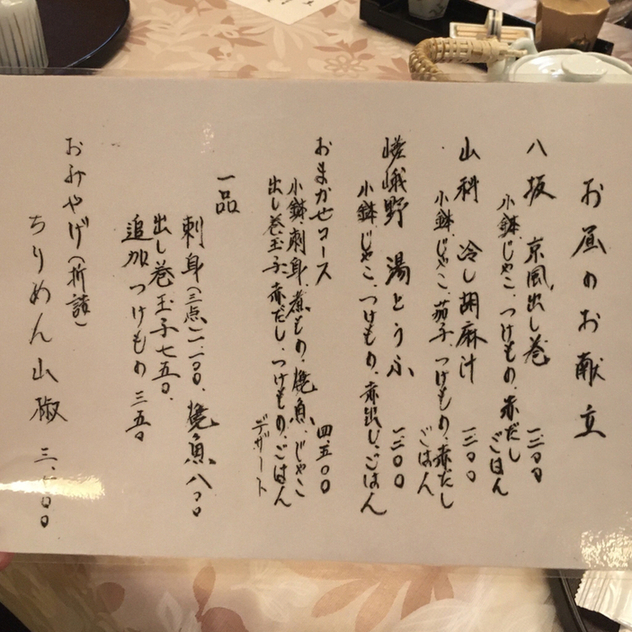 お昼のお献立
八坂 京風出し巻 一三〇〇
小鉢、じゃこ、つけもの、赤だし
ごはん
山科 冷し胡麻汁 一三〇〇
小鉢、じゃこ、茄子、つけもの、赤だし
ごはん
嵯峨野 湯とうふ 一三〇〇
小鉢、じゃこ、つけもの、赤出し、ごはん
おまかせコース 四五〇〇
小鉢、刺身、煮もの、焼魚、じゃこ
出し巻玉子、赤だし、つけもの、ごはん
デザート
一品
刺身(三点)一二〇〇、焼魚 八〇〇
出し巻玉子 七五〇、
追加 つけもの 三五〇
おみやげ(折詰)
ちりめん山椒